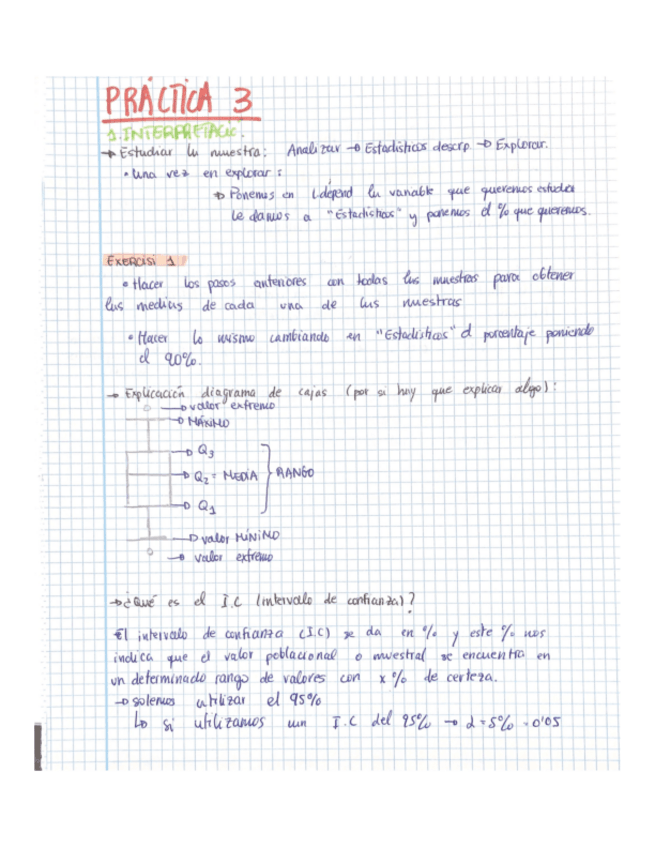 PRÁCTICA 3
1. INTERPRETACIÓ.
→ Estudiar la muestra: Analizar → Estadísticos descrip → Explorar.
• Una vez en explorar:
→ Ponemos en L.depend la variable que queremos estudiar
le damos a "Estadísticos" y ponemos el % que queremos.
EXERCISI 1
• Hacer los pasos anteriores con todas las muestras para obtener
las medias de cada una de las muestras
• Hacer lo mismo cambiando en "Estadísticos" el porcentaje poniendo
el 90%.
→ Explicación diagrama de cajas (por si hay que explicar algo):
→ valor extremo
→ MÁXIMO
→ Q3
→ Q2 = MEDIA } RANGO
→ Q1
→ valor MÍNIMO
→ valor extremo
→ ¿Qué es el I.C (intervalo de confianza)?
El intervalo de confianza (I.C) se da en % y este % nos
indica que el valor poblacional o muestral se encuentra en
un determinado rango de valores con x % de certeza.
→ solemos utilizar el 95%
↳ si utilizamos un I.C del 95% → α = 5% = 0'05